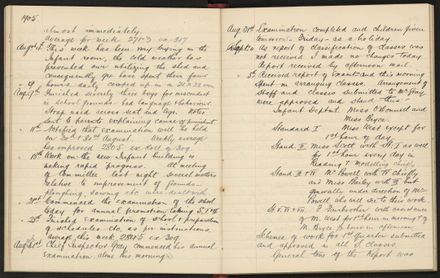 1905.
almost immediately.
Average for week 271.3 ex. 317
Aug 4th This week has been very trying in the
Infant room, the cold weather has
prevented our using the shed and
consequently we have spent these four
hours daily cooped up in a 20 x 22 room
Punished severely three boys for misconduct
in school grounds. bad language & behaviour.
Strap used across seat and legs. Notes
sent to parents explaining cause of punishment
11th Notified that examination will be held
on 29th & 30th August. Weekly average
has improved 280.5 ex. Roll of 309.
18th Work on the new Infant building is
making rapid progress. At meeting
of Committee last night several matters
relative to improvement of grounds
planting, sowing etc. were dealt with.
Commenced the examination of the school
today for annual promotion
25th Finished examination of school & preparation
of schedules etc. as per instructions.
Average this week 284.5 ex. 309.
Chief Inspector Gray commenced his annual
examination here this morning.
Aug 30th Examination completed and children given
tomorrow - Friday - as a holiday.
Sept As report of classification of classes was
not received I made no changes today.
Report received by afternoon mail.
5th Received report of Exam and this morning
spent in arranging classes. Arrangement of
Staff and Classes submitted to Mr Gray
were approved and stand thus:-
Infant Dept. Misses O'Donnell and
Miss Bryce.
Standard I Miss West except for
1st hour of day.
Stand II Miss Scott with St. I as well
for 1st hour every day in
Reading & Modelling chiefly.
Stand III & IV Mr Maxwell with IV chiefly
and Miss Bailey with III but
generally under direction of Mr
Maxwell who will see to this work.
St. V. VI & VII. F. Thurbottner with assistance
of M. West for 1st hour in morning &
M. Bryce ½ hour in afternoon.
Schemes of work for 1st Quarter submitted
and approved in all classes.
General tone of the Report was